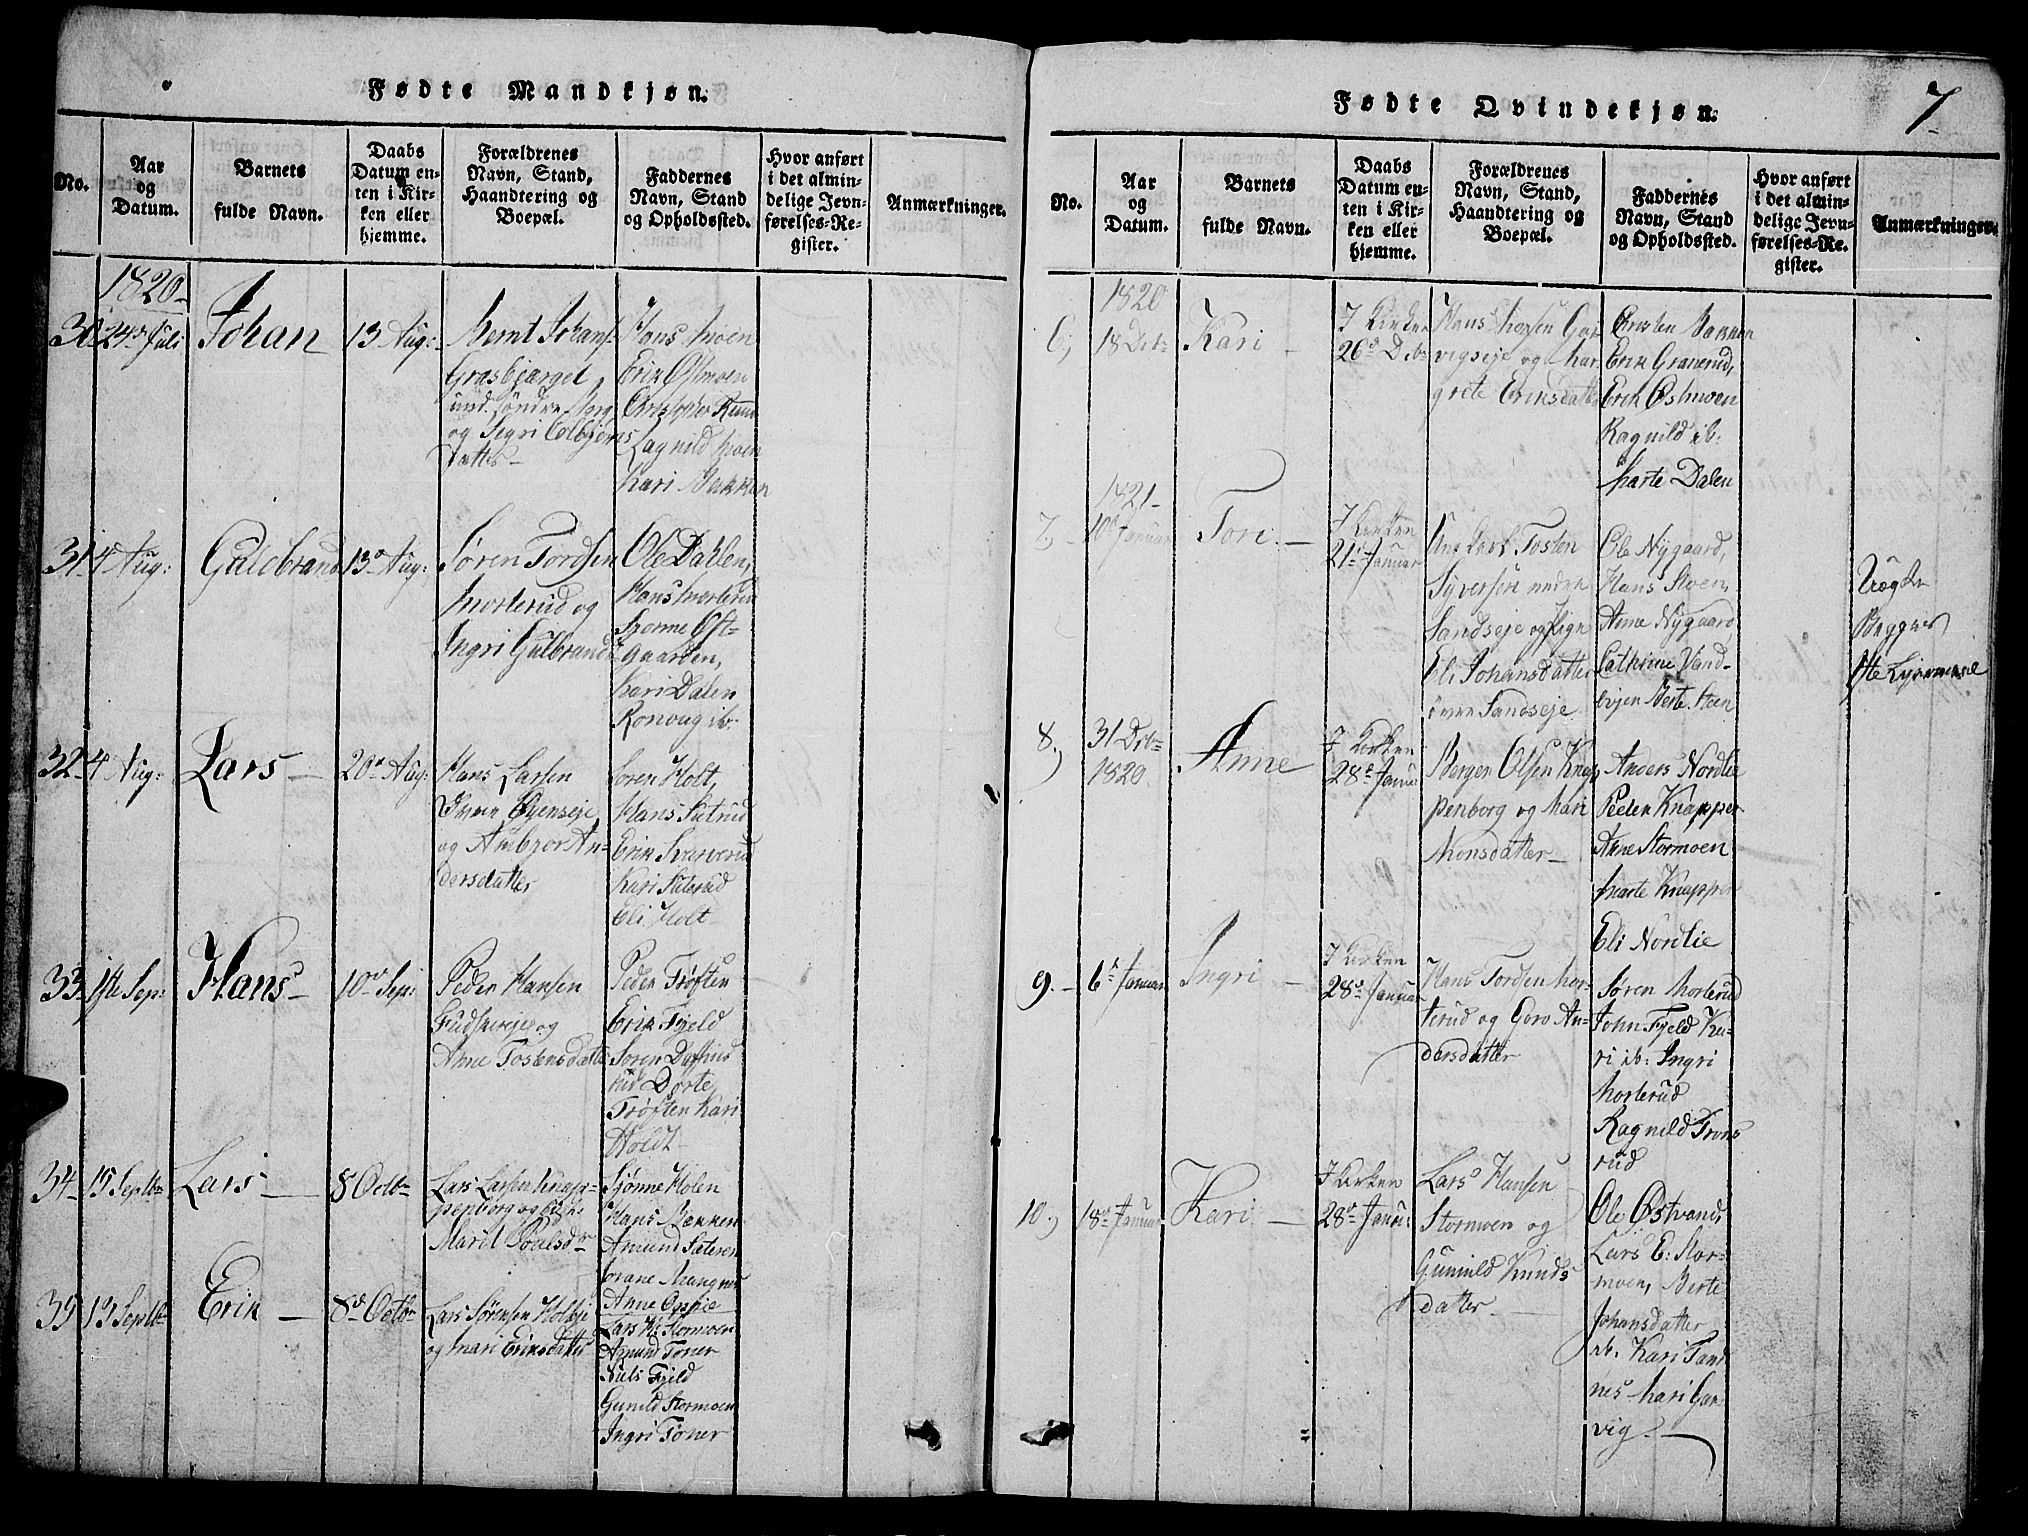 Fødte Mandkjøn.
No.
Aar
og
Datum.
Barnets
fulde Navn.
Daabs
Datum en-
ten i Kir-
ken eller
hjemme.
Forældrenes
Navn, Stand,
Haandtering og
Boepæl.
Faddernes
Navn, Stand
og Opholdssted.
Hvor anført
i det almin-
delige Jevn-
førelses-Re-
gister.
Anmærkninger.
1820
30 24de Juli
Johan
13 Aug:
Bernt Johans
Grasbjerget
und. søndre Berg
og Sigri Colbjørns
datter
Hans Moen
Erik Østmoen
Christopher
Ragnild Moen
Kari Bakken
31 4 Aug:
Guldbrand
13de Aug:
Søren Tordsen
Morterud og
Ingri Gulbrands
Ole Dahlen,
Hans Morterud
Øst-
Gaarden,
Kari Dalen
Ronvug ib:
32 4 Aug:
Lars
20de Aug:
Hans Larsen
Øyenseje
og Ambjør An-
dersdatter
Soren Holt,
Hans Sætrud
Erik
Kari Sæterud
Eli Holt
33 1ste Sep:
Hans
10de Sep:
Peder Hansen
og
Anne Tostensdatter
Peder Trøften
Erik Fjeld
Soren
rud Dorte
Trøften Kari
Holdt
34 15 Septbr
Lars
8 Octbr
Lars Larsen Knap-
penborg og
Marit Poulsdr
Sjønne Holen
Hans Bakken
Amund Sæteren
Anne Oppie
35 13 Septbr
Erik
8de Octbr
Lars Sørensen
og Mari Eriksdatter
Lars H: Stormoen
Amund Toner
Niels Fjeld
Gunild Stormoen
Ingri Toner
Fødte Qvindekjøn.
7
No.
Aar
og
Datum.
Barnets
fulde Navn.
Daabs
Datum en-
ten i Kir-
ken eller
hjemme.
Forældrenes
Navn, Stand,
Haandtering og
Boepæl.
Faddernes
Navn, Stand
og Opholdssted.
Hvor anført
i det almin-
delige Jevn-
førelses-Re-
gister.
Anmærkninger.
1820
6, 18 Dcbr
Kari
I Kirken
26de Dcbr
Hans
vigseje og Mar
grete Eriksdatter
Christen Bakken
Erik Granerud,
Erik Østmoen
Ragnild ib:
Marte Dalen
1821
7, 10de Januar
Tori
I Kirken
21de Januar
Ung Karl Tosten
Syversen nedre
Sandseje og Pige
Eli Johansdatter
øvre Sandseje
Ole Nygaard,
Hans Moen,
Anne Nygaard
Cathrine Vand-
Berte Moen
Begges
1ste Lejermaal
8, 31 Dcbr
1820
Anne
I Kirken
28de Januar
Berger Olsen Knap
penborg og Mari
Monsdatter
Anders Nordlie
Peder Knapper
Anne Stormoen
Marte Knapper
Eli Nordlie
9. 6te Januar
Ingri
I Kirken
28de Januar
Hans Tordsen Mor-
terud og Goro An-
dersdatter
Søren Morterud
John Fjeld Ka-
ri ib: Ingri
Morterud
Ragnild Trons
rud
10, 18de Januar
Kari
I Kirken
28de Janu:
Lars Hansen
Stormoen og
Gunnild Knuds
datter
Ole Østvand,
Lars E: Stor-
moen, Berte
Johansdatter
ib. Kari Sand
nes Mari Gar
vig.